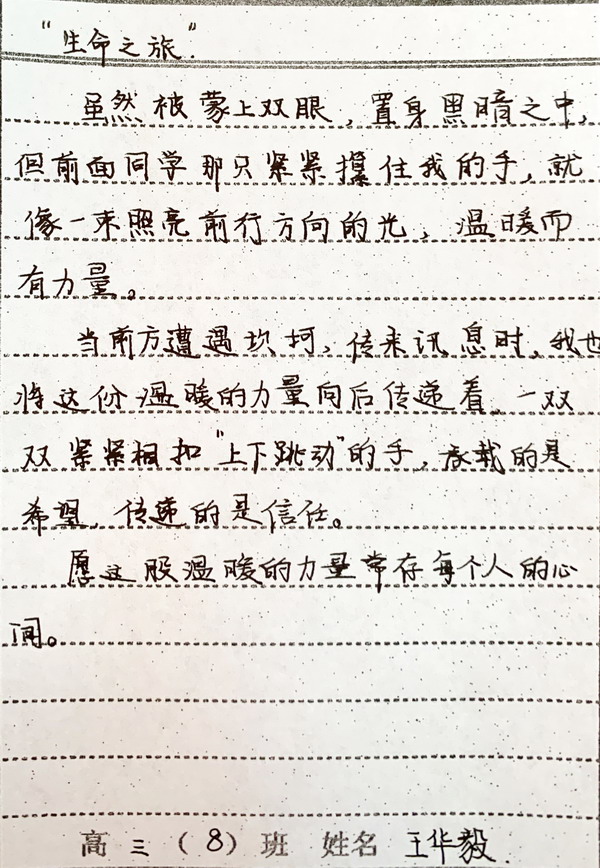 “生命之旅”.
虽然被蒙上双眼，置身黑暗之中，
但前面同学那只紧紧攥住我的手，就
像一束照亮前行方向的光，温暖而
有力量。
当前方遭遇坎坷，传来讯息时，我也
将这份温暖的力量向后传递着，一双
双紧紧相扣“上下跳动”的手，承载的是
希望，传递的是信任。
愿这股温暖的力量常存每个人的心
间。
高三（8）班 姓名 王华毅